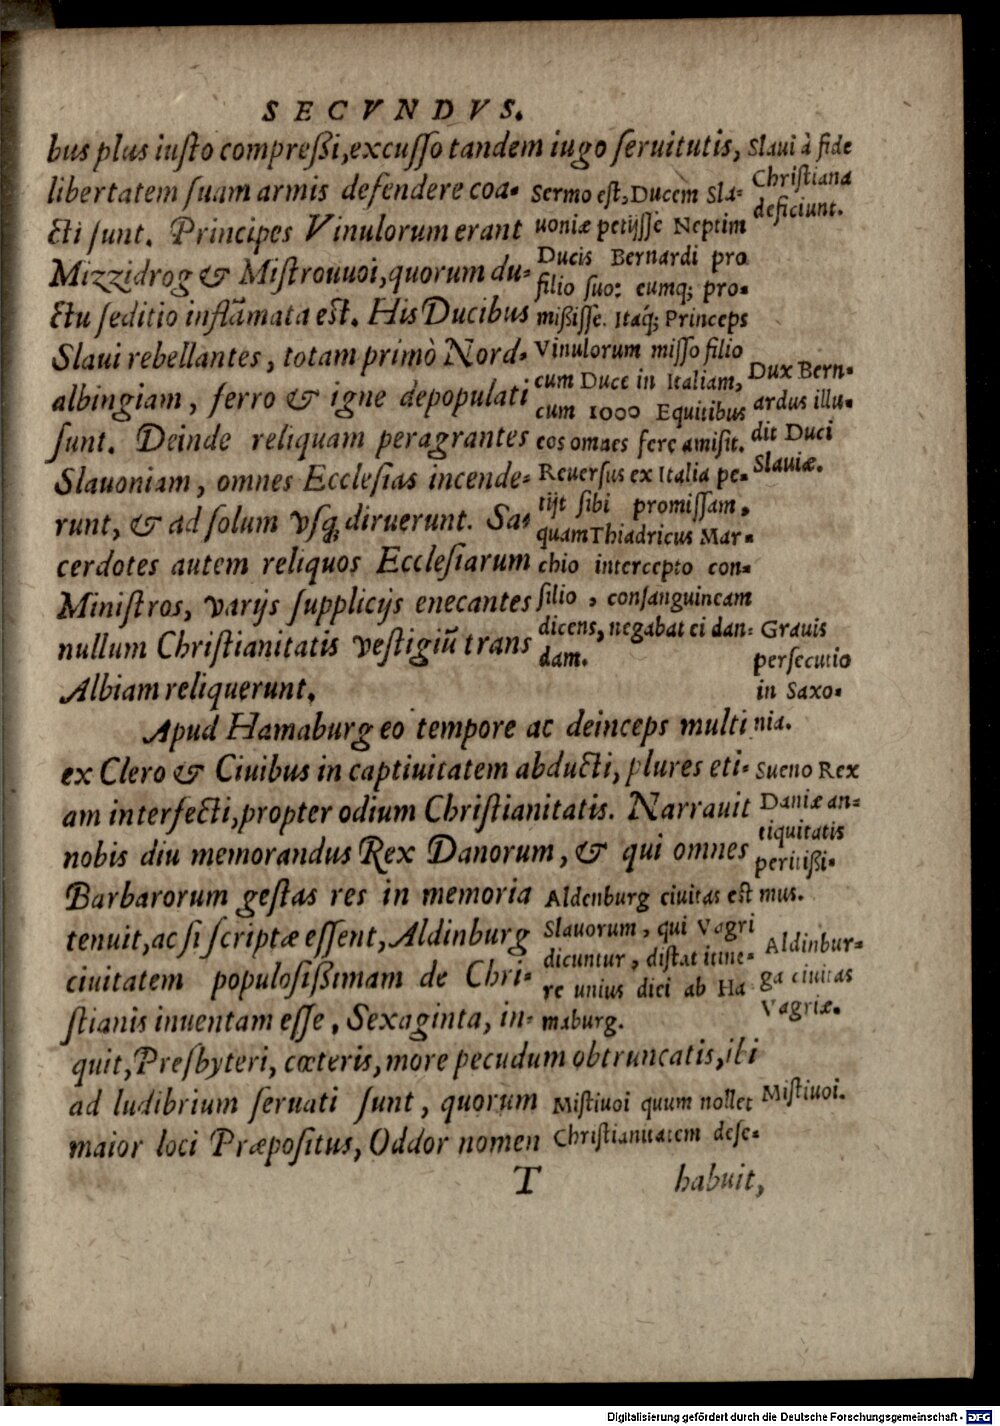 SECVNDVS.
bus plus iusto compreßi, excusso tandem iugo seruitutis,
libertatem suam armis defendere coa-
cti sunt. Principes Vinulorum erant
Mizzidrog & Mistrouuoi, quorum du-
ctu seditio inflãmata est. His Ducibus
Slaui rebellantes, totam primò Nord-
albingiam, ferro & igne depopulati
sunt. Deinde reliquam peragrantes
Slauoniam, omnes Ecclesias incende-
runt, & ad solum vsq; diruerunt. Sa-
cerdotes autem reliquos Ecclesiarum
Ministros, varijs supplicijs enecantes
nullum Christianitatis vestigiũ trans
Albiam reliquerunt.
Sermo est, Ducem Sla-
uoniæ petijsse Neptim
Ducis Bernardi pro
filio suo: eumq; pro-
mißisse. Itaq; Princeps
Vinulorum misso filio
cum Duce in Italiam,
cum 1000 Equitibus
eos omnes fere amisit.
Reuersus ex Italia pe-
tijt sibi promissam,
quam Thiadricus Mar-
chio intercepto con-
silio, consanguineam
dicens, negabat ei dan-
dam.
Slaui à fide
Christiana
deficiunt.
Dux Bern-
ardus illu-
dit Duci
Slauiæ.
Grauis
persecutio
in Saxo-
nia.
Apud Hamaburg eo tempore ac deinceps multi
ex Clero & Ciuibus in captiuitatem abducti, plures eti-
am interfecti, propter odium Christianitatis. Narrauit
nobis diu memorandus Rex Danorum, & qui omnes
Barbarorum gestas res in memoria
tenuit, ac si scriptæ essent, Aldinburg
ciuitatem populosißimam de Chri-
stianis inuentam esse, Sexaginta, in-
quit, Presbyteri, cæteris, more pecudum obtruncatis, ibi
ad ludibrium seruati sunt, quorum
maior loci Præpositus, Oddor nomen
Aldenburg ciuitas est
Slauorum, qui Vagri
dicuntur, distat itine-
re unius diei ab Ha
maburg.
Mistiuoi quum nollet
Christianitatem dese-
Sueno Rex
Daniæ an-
tiquitatis
peritißi-
mus.
Aldinbur-
ga ciuitas
Vagriæ.
Mistiuoi.
T
habuit,
Digitalisierung gefördert durch die Deutsche Forschungsgemeinschaft - DFG